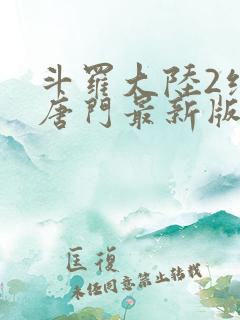 斗羅大陸2
唐門最新版
匡復
未經同意禁止轉載